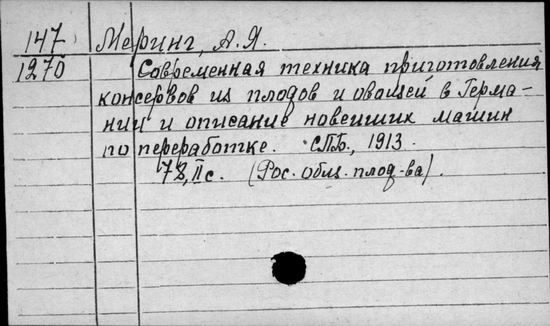 147 Меринг, А.Я.
1270 Современная техника приготовления
консервов из плодов и овощей в Герма-
нии и описание новейших машин
по переработке. СПБ., 1913.
73, II с. (Рос. общ. плод-ва).